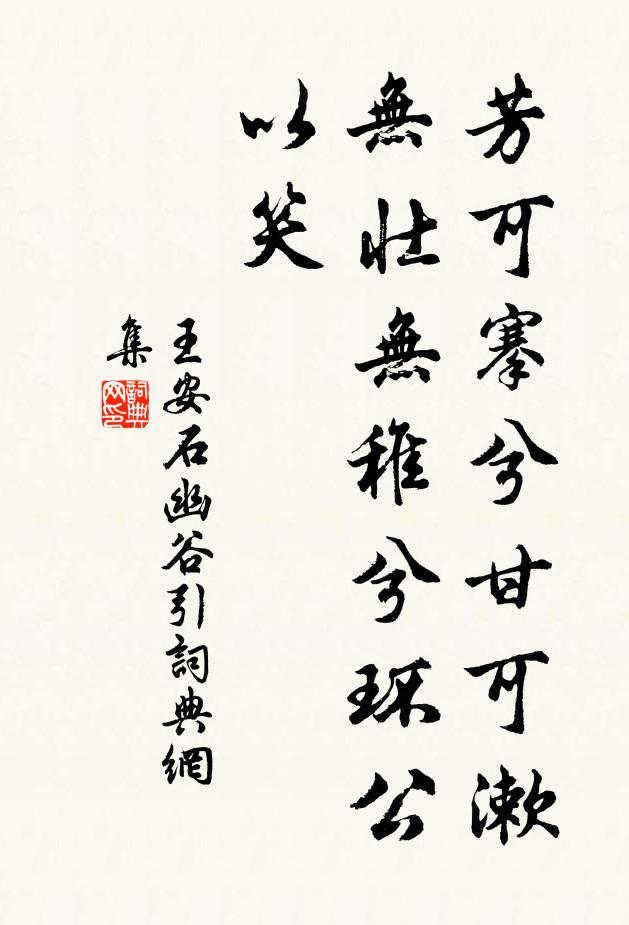 芳可搴兮甘可漱
無壯無稚兮环公
以笑
王安石幽谷引詞典網
集
詞典
网印